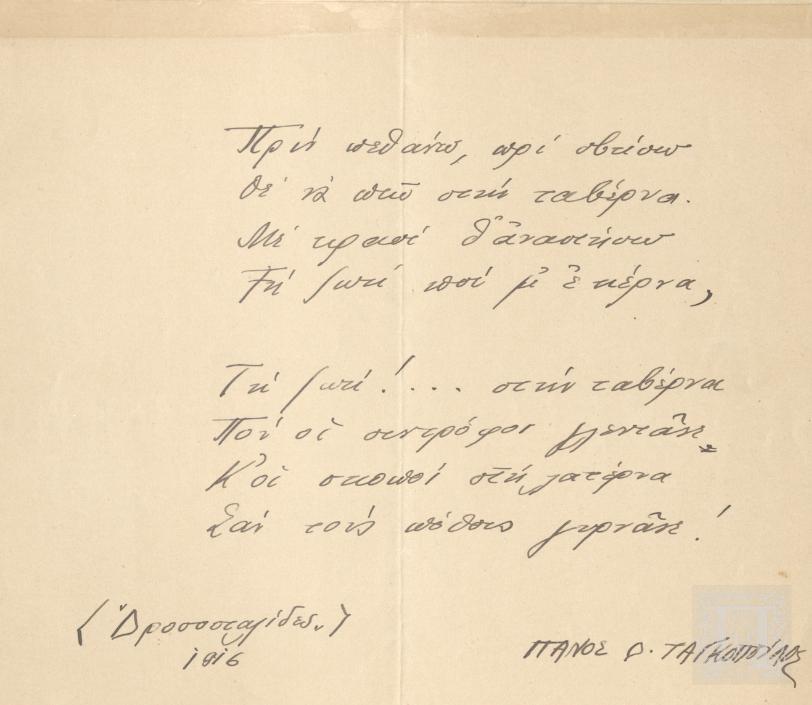 Πρὶν πεθάνω, πρὶ σβύσω
Θὲ νὰ πιῶ στὴν ταβέρνα.
Μὲ κρασὶ θ' ἀναστήσω
Τὴ ζωὴ ποὺ μ' ἐκέρνα,
Τὴ ζωή!... στὴν ταβέρνα
Ποὺ οἱ συντρόφοι γλεντᾶνε
Κ' οἱ σκοποὶ στὴ λατέρνα
Σὰν τοὺς πόθους γυρνᾶνε!
("Δροσοσταλίδες")
1916
ΠΑΝΟΣ Δ. ΤΑΓΚΟΠΟΥΛΟΣ